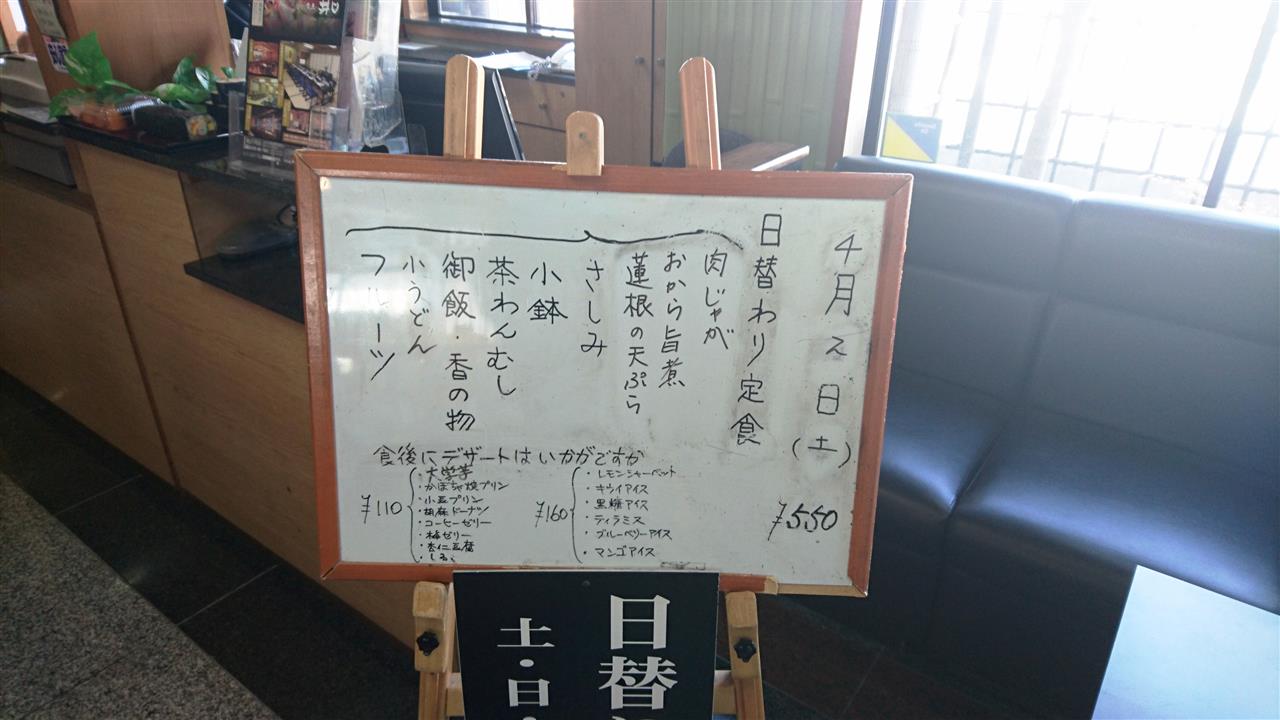 4月2日(土)
日替わり定食
肉じゃが
おから旨煮
蓮根の天ぷら
さしみ
小鉢
茶わんむし
御飯・香の物
小うどん
フルーツ
¥550
食後にデザートはいかがですか
¥110
・大学芋
・かぼちゃ焼プリン
・小豆プリン
・胡麻ドーナツ
・コーヒーゼリー
・梅ゼリー
・杏仁豆腐
¥160
・レモンシャーベット
・キウイアイス
・黒糖アイス
・ティラミス
・ブルーベリーアイス
・マンゴアイス
日替
土・日・